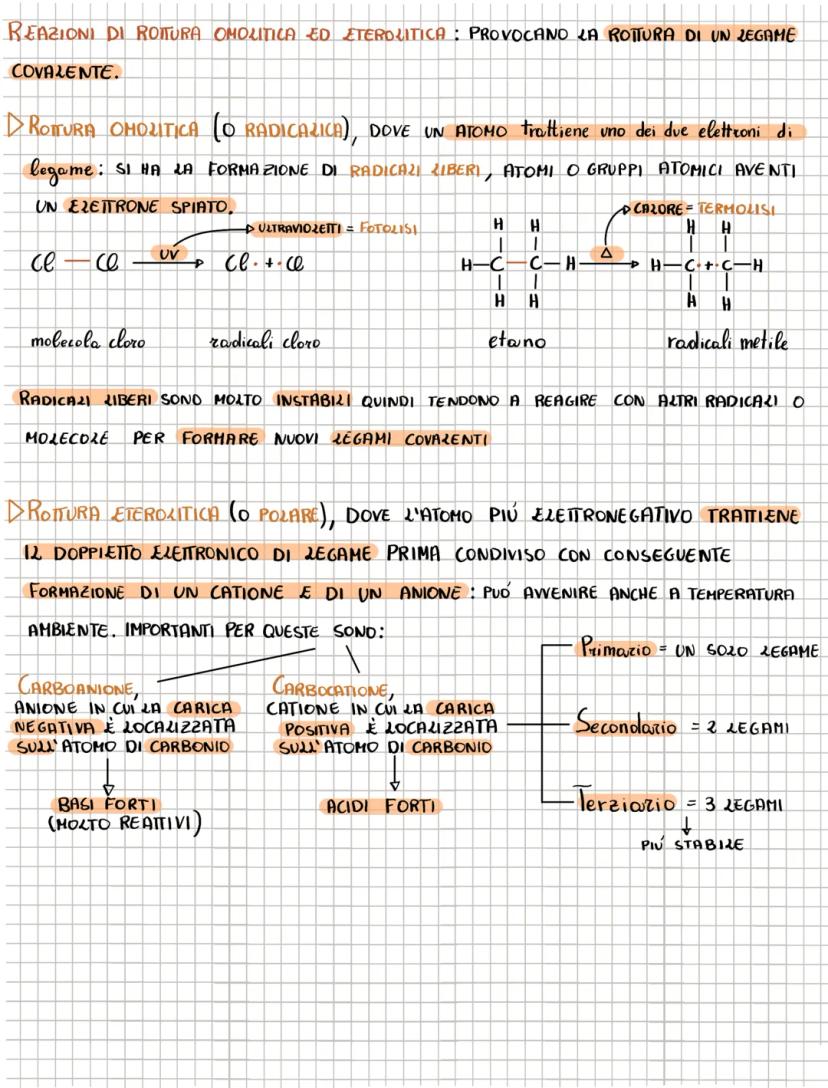 REAZIONI DI ROTTURA OMOLITICA ED ETEROLITICA : PROVOCANO LA ROTTURA DI UN LEGAME
COVALENTE.
▷ ROTTURA OMOLITICA (O RADICALICA), DOVE UN ATOMO trattiene uno dei due elettroni di
legame : SI HA LA FORMAZIONE DI RADICALI LIBERI, ATOMI O GRUPPI ATOMICI AVENTI
UN ELETTRONE SPIATO.
ULTRAVIOLETTI = FOTOLISI
CALORE = TERMOLISI
H H
H H
Cl — Cl UV Cl· + ·Cl
H—C—C—H Δ H—C·+·C—H
H H
H H
molecola cloro radicali cloro etano radicali metile
RADICALI LIBERI SONO MOLTO INSTABILI QUINDI TENDONO A REAGIRE CON ALTRI RADICALI O
MOLECOLE PER FORMARE NUOVI LEGAMI COVALENTI
▷ ROTTURA ETEROLITICA (O POLARE), DOVE L'ATOMO PIÚ ELETTRONEGATIVO TRATTIENE
IL DOPPIETTO ELETTRONICO DI LEGAME PRIMA CONDIVISO CON CONSEGUENTE
FORMAZIONE DI UN CATIONE E DI UN ANIONE : PUÓ AVVENIRE ANCHE A TEMPERATURA
AMBIENTE. IMPORTANTI PER QUESTE SONO:
CARBOANIONE,
ANIONE IN CUI LA CARICA
NEGATIVA È LOCALIZZATA
SULL'ATOMO DI CARBONIO
BASI FORTI
(MOLTO REATTIVI)
CARBOCATIONE,
CATIONE IN CUI LA CARICA
POSITIVA È LOCALIZZATA
SULL'ATOMO DI CARBONIO
ACIDI FORTI
Primario = UN SOLO LEGAME
Secondario = 2 LEGAMI
Terziario = 3 LEGAMI
PIÚ STABILE